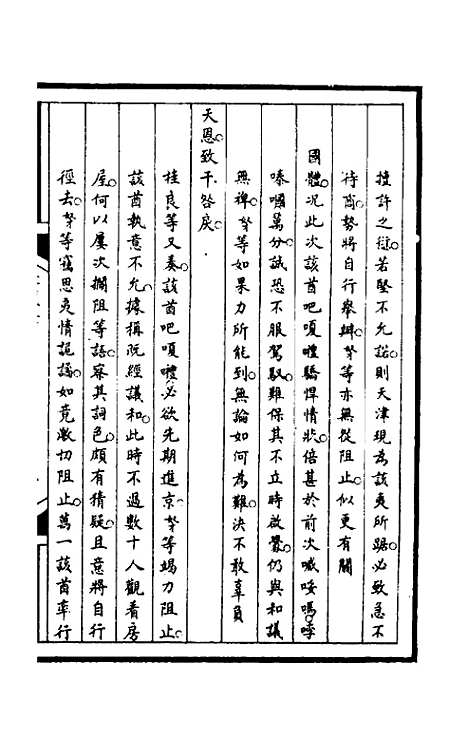 擅許之愆。若堅不允諾。則天津現為該夷所踞。必致急不
待商。勢將自行舉辦。等亦無從阻止。似更有關
國體。況此次該酋吧嗄禮驕悍情狀。倍甚於前次喊㖿嗎。哱
嗪囑萬分。誠恐不服駕馭。難保其不立時啟釁。仍與和議
無裨。等如果力所能到。無論如何為難。決不敢辜負
天恩。致干咎戾。
桂良等又奏。該酋吧嗄禮。必欲先期進京。等竭力阻止。
該酋執意不允。據稱既經議和。此時不過數十人觀看房
屋。何以屢次攔阻等語。察其詞色。頗有猜疑。且意將自行
徑去。等竊思夷情詭譎。如竟激切阻止。萬一該酋率行